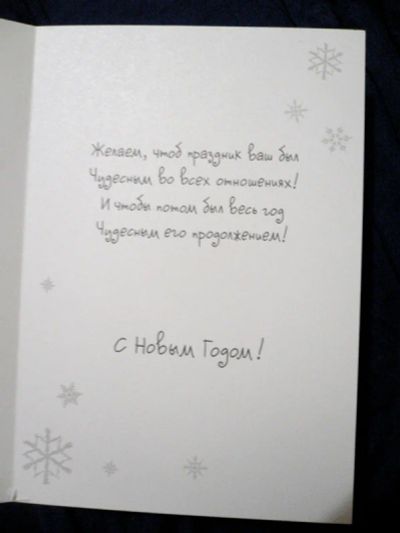 Желаем, чтоб праздник ваш был
Чудесным во всех отношениях!
И чтобы потом был весь год
Чудесным его продолжением!
С Новым Годом!